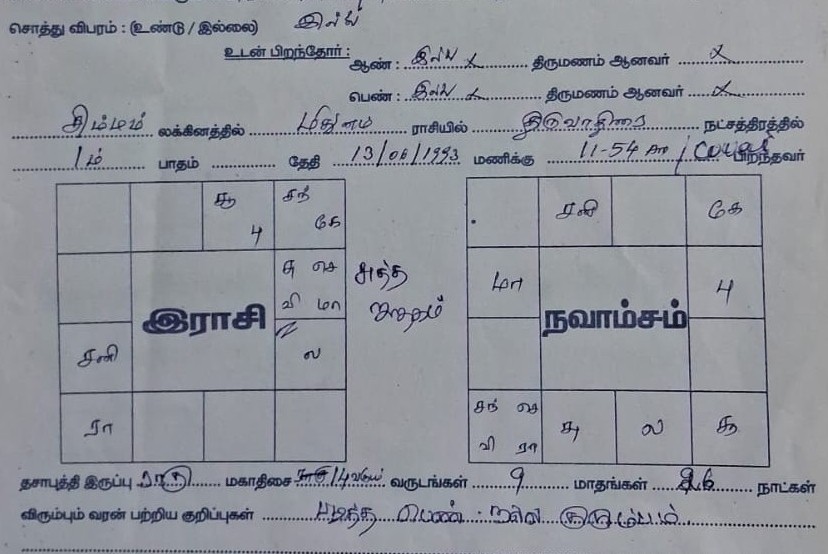 சொத்து விபரம் : (உண்டு / இல்லை) இல்லை
உடன் பிறந்தோர் : ஆண் : இல்லை x திருமணம் ஆனவர் x
பெண் : இல்லை x திருமணம் ஆனவர் x
சிம்மம் லக்கினத்தில் மிதுனம் ராசியில் திருவாதிரை நட்சத்திரத்தில்
1ம் பாதம் தேதி 13/06/1993 மணிக்கு 11-54 Am / பிறந்தவர்
சூ சந் சனி கே
4 கே
சு செ சுத்த மா
வி மா ஜாதகம் 4
இராசி நவாம்சம்
சனி ல
சந் செ
ரா வி ரா சு ல சூ
தசாபுத்தி இருப்பு ராகு மகாதிசை 14 வருடங்கள் 9 மாதங்கள் 26 நாட்கள்
விரும்பும் வரன் பற்றிய குறிப்புகள் படித்த பெண் : நல்ல குடும்பம்